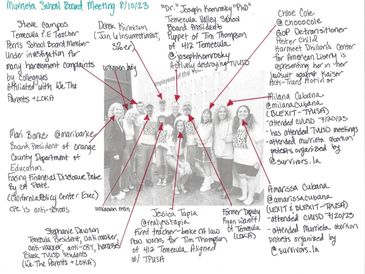 Murrieta School Board Meeting 8/10/23
Steve Campos
Temecula P.E Teacher
Perris School Board Member
Under investigation for
many harassment complaints
by colleagues
affiliated with We The
Parents + LOKA
Derek
(Jan 6 Insurrectionist,
"Dr." Joseph Komrosky "PhD"
Temecula Valley School
Board President
Puppet of Tim Thompson
of 412 Temecula,
@josephkomrosky
Actively destroying TVUSD
Chloe Cole
@chooocole
GOP Detransitioner
Foster Child
Harmeet Dhillon's Center
for American Liberty is
representing her in her
lawsuit against Kaiser
Anti-Trans Activist
Milana Cubana
@milanacubana
(BLEXIT-TPUSA)
-attended CVUSD 7/20/23
-has attended TPUSA meetings
-attended murrieta abortion
protests organized by
@survivors.la
Amarissa Cubana
@amarissacubana
(BLEXIT-TPUSA)
-attended CVUSD 7/20/23
-attended murrieta abortion
protests organized by
@survivors.la
Mari Barke @maribarke
Board President of Orange
County Department of
Education,
Facing Financial Disclosure Debate
By CA State
(California Policy Center Exec)
CPC is anti-unions
unknown man
Stephanie Davison
Temecula Resident, anti masker,
anti-vaxxer, anti-CRT, harasses
Black TVUSD students
(We The Parents + LOKA)
Jessica Tapia
@realjesstapia
Fired teacher-broke CA law
now works for Tim Thompson
of 412 Temecula, Aligned
w/ TPUSA
Former Deputy
Ryan
of Temecula
(LOKA)